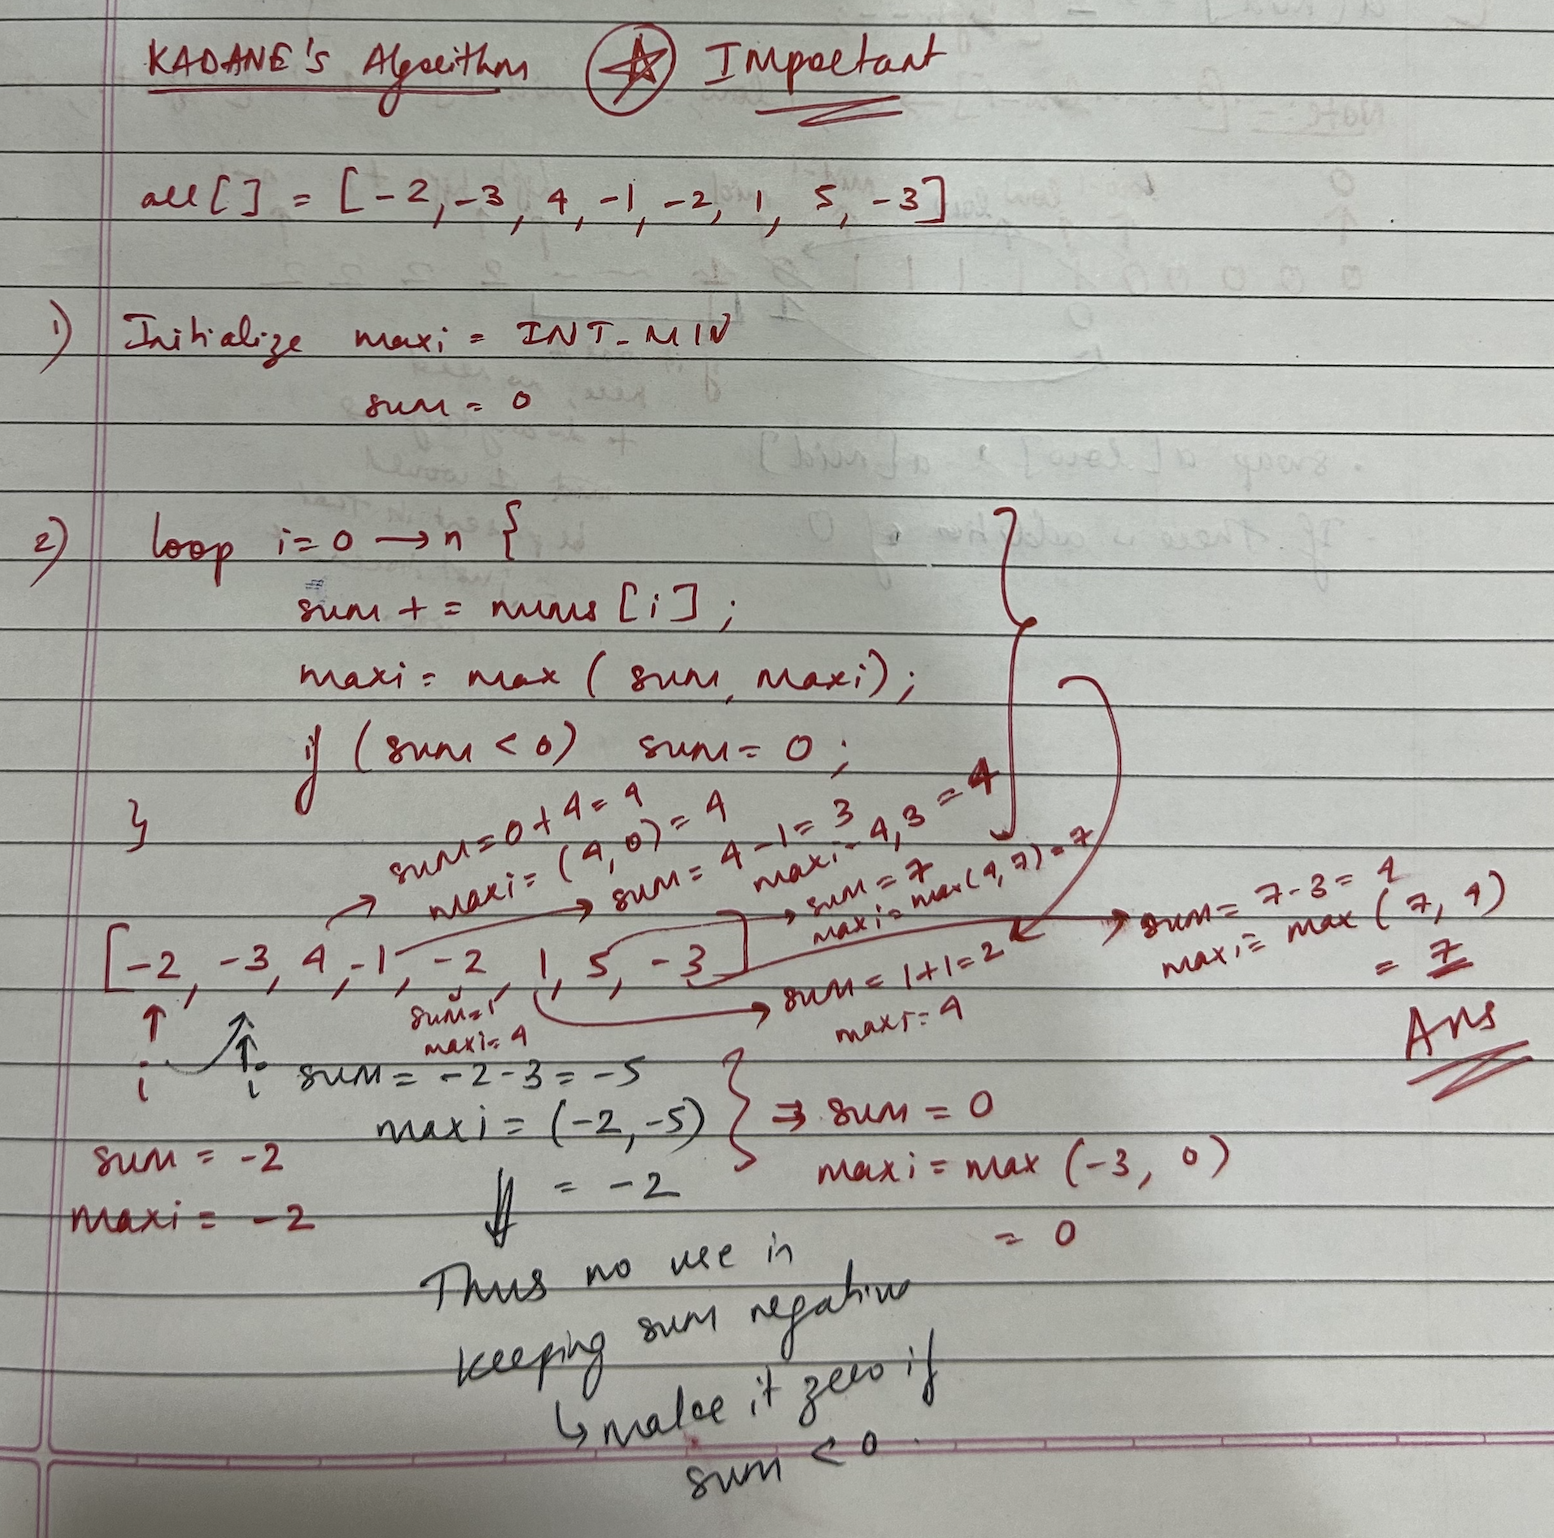 KADANE's Algorithm ☆ Important
arr[] = [-2, -3, 4, -1, -2, 1, 5, -3]
1) Initialize maxi = INT_MIN
sum = 0
2) loop i=0 → n {
sum += nums[i];
maxi = max ( sum, maxi);
if (sum < 0) sum = 0;
}
sum = 0 + 4 = 4
maxi = (4, 0) = 4
sum = 4 - 1 = 3
maxi = 4, 3 = 4
sum = 7
maxi = max(4, 7) = 7
sum = 7 - 3 = 4
maxi = max (7, 4)
= 7
Ans
[-2, -3, 4, -1, -2, 1, 5, -3]
sum=1
maxi=4
sum = 1+1=2
maxi = 4
i
i
sum = -2
maxi = -2
sum = -2-3 = -5
maxi = (-2, -5)
= -2
} ⇒ sum = 0
maxi = max (-3, 0)
= 0
Thus no use in
keeping sum negative
↳ make it zero if
sum < 0